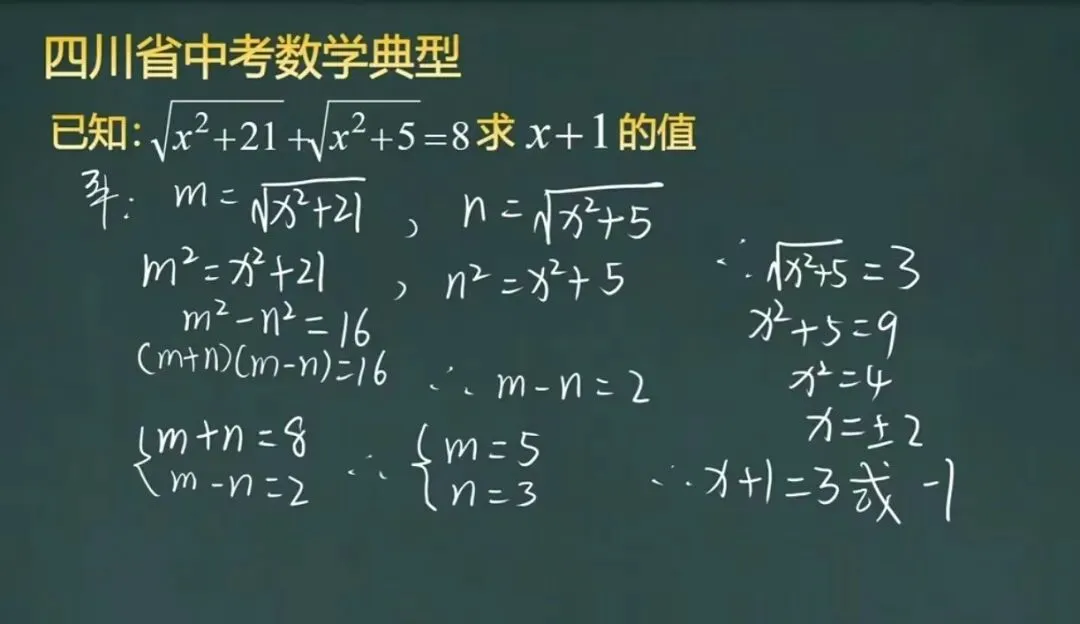 四川省中考数学典型
已知:√(x²+21)+√(x²+5)=8求 x+1 的值
m=√(x²+21) , n=√(x²+5)
m²=x²+21 , n²=x²+5
m²-n²=16
(m+n)(m-n)=16 ∴ m-n=2
{m+n=8 ∴ {m=5
{m-n=2 {n=3
∴√(x²+5)=3
x²+5=9
x²=4
x=±2
∴x+1=3或 -1